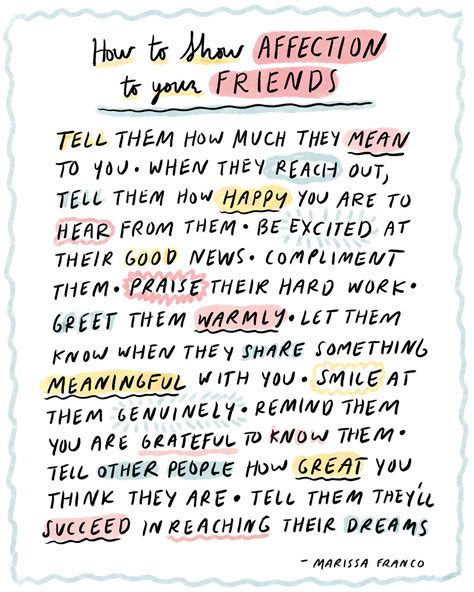 How to Show AFFECTION
to your FRIENDS
TELL THEM HOW MUCH THEY MEAN
TO YOU • WHEN THEY REACH OUT,
TELL THEM HOW HAPPY YOU ARE TO
HEAR FROM THEM • BE EXCITED AT
THEIR GOOD NEWS • COMPLIMENT
THEM • PRAISE THEIR HARD WORK •
GREET THEM WARMLY • LET THEM
KNOW WHEN THEY SHARE SOMETHING
MEANINGFUL WITH YOU • SMILE AT
THEM GENUINELY • REMIND THEM
YOU ARE GRATEFUL TO KNOW THEM •
TELL OTHER PEOPLE HOW GREAT YOU
THINK THEY ARE • TELL THEM THEY'LL
SUCCEED IN REACHING THEIR DREAMS
- MARISSA FRANCO